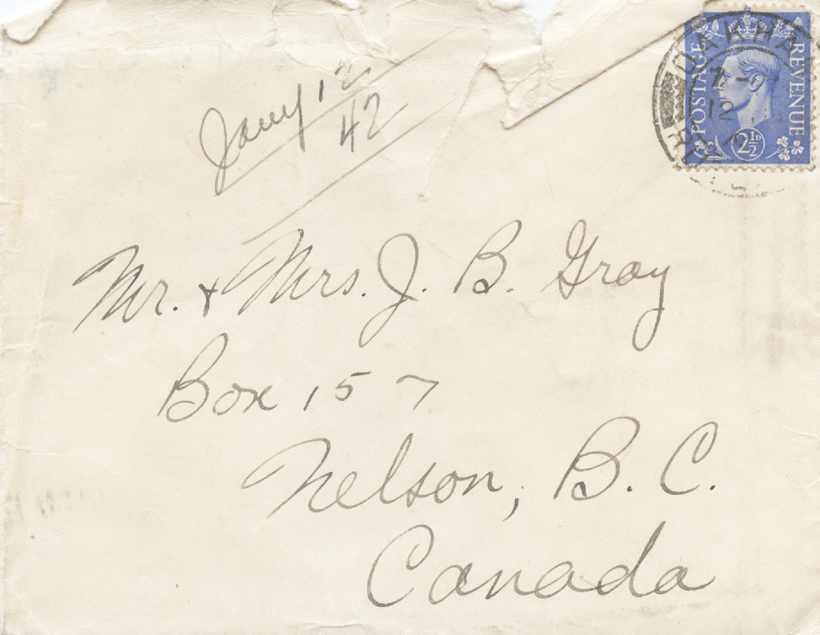 Jany 12
42
POSTAGE REVENUE
2½D
12
Mr. + Mrs. J. B. Gray
Box 157
Nelson, B. C.
Canada